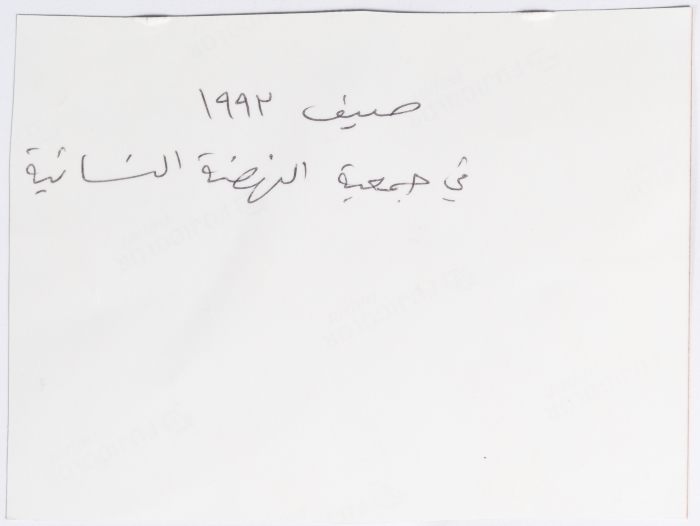 صيف ١٩٩٢
في جمعية النهضة النسائية